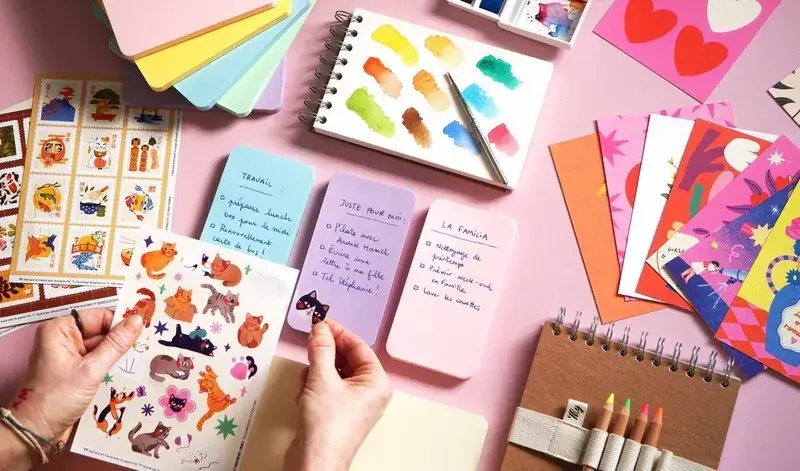 TRAVAIL :
préparer lunch
box pour le midi
Renouvellement
carte de bus !
JUSTE POUR MOI :
Pilate avec
Anouk Hamel
Écrire une
lettre à ma fille
Tel Stéphanie !
LA FAMILIA
Nettoyage de
printemps
Prévoir week-end
en famille
Laver les couettes